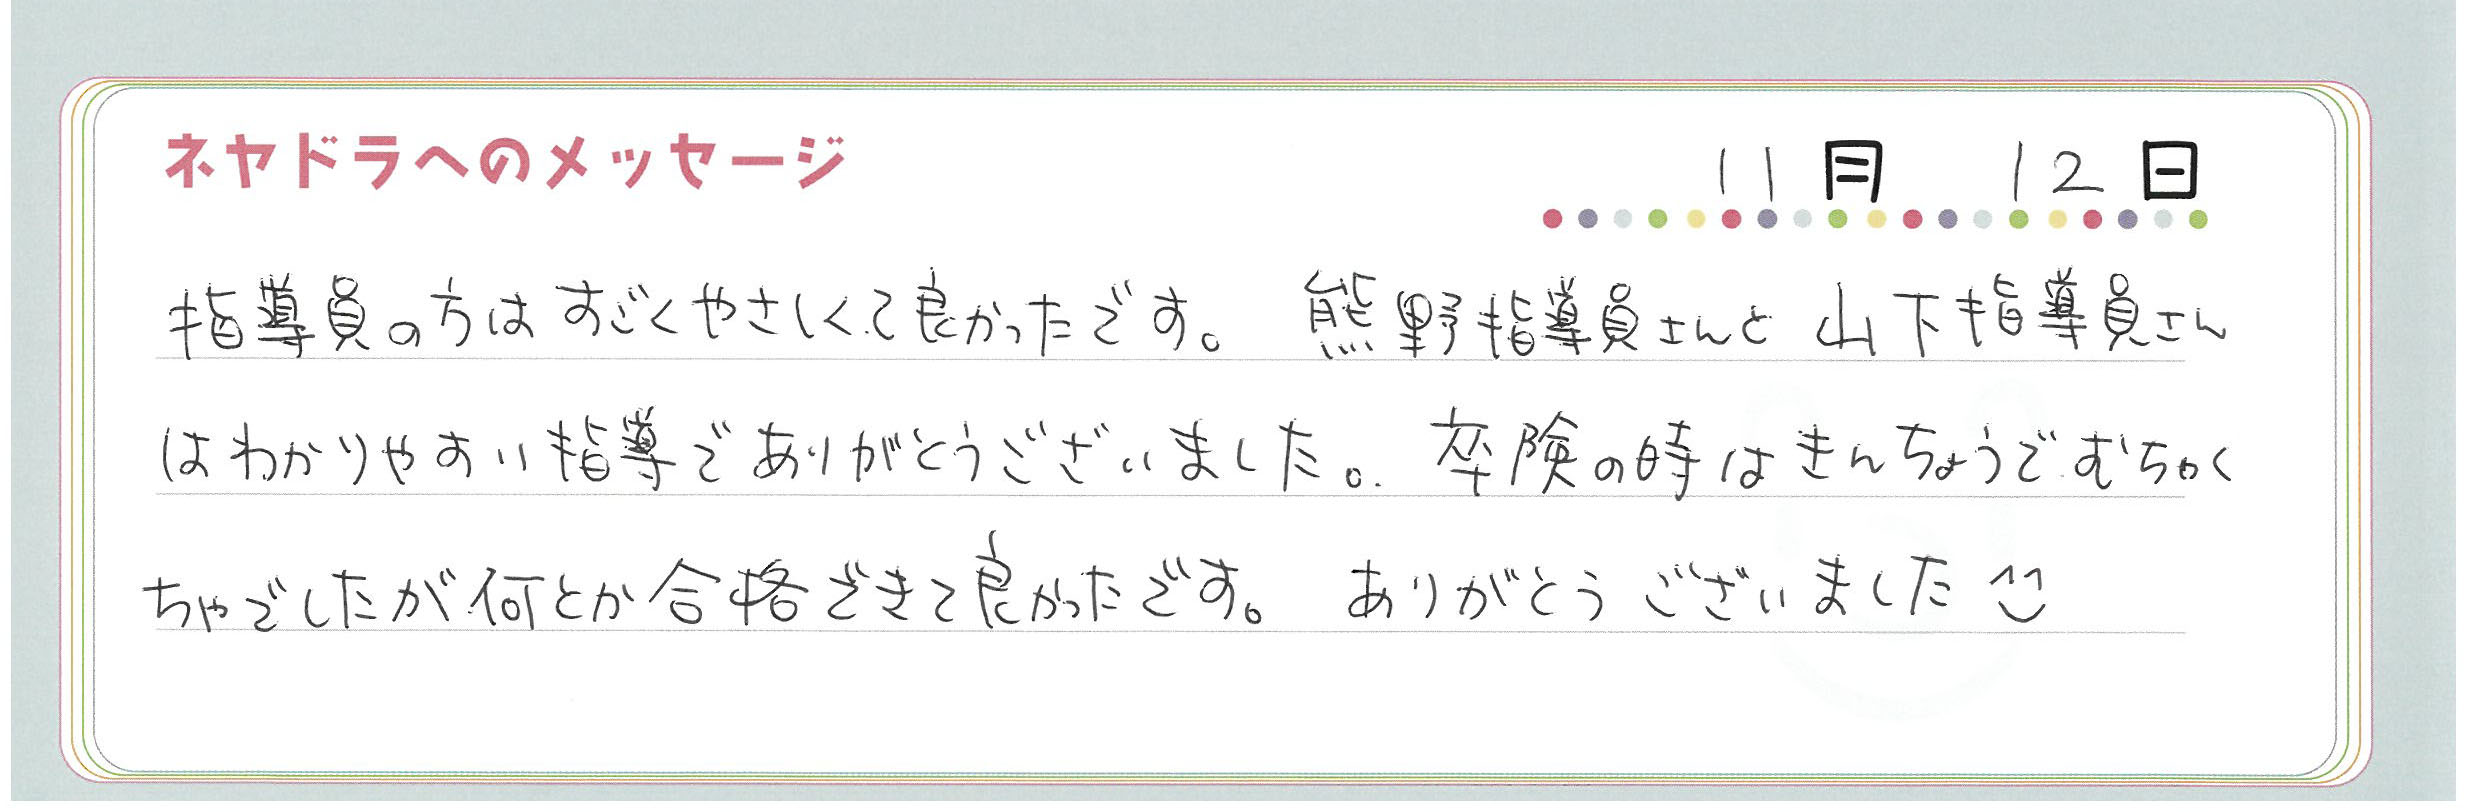 ネヤドラへのメッセージ
11月 12日
指導員の方はすごくやさしくて良かったです。 熊野指導員さんと 山下指導員さん
はわかりやすい指導でありがとうございました。 卒険の時はきんちょうでむちゃく
ちゃでしたが何とか合格できて良かったです。 ありがとうございました